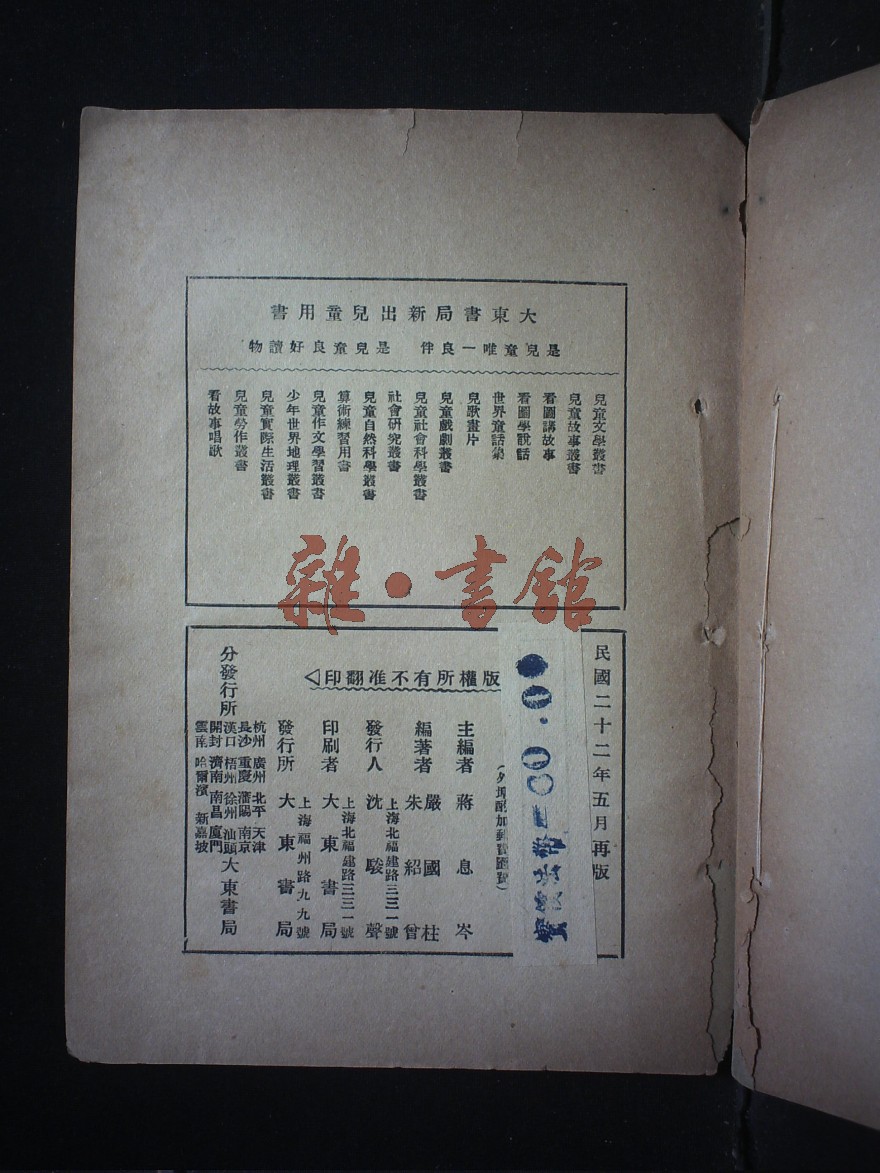 大東書局新出兒童用書
是兒童唯一良伴　是兒童良好讀物
兒童文學叢書
兒童故事叢書
看圖講故事
看圖學說話
世界童話集
兒歌畫片
兒童戲劇叢書
兒童社會科學叢書
社會研究叢書
兒童自然科學叢書
算術練習用書
兒童作文學習叢書
少年世界地理叢書
兒童實際生活叢書
兒童勞作叢書
看故事唱歌
雜·書館
民國二十二年五月再版
(外埠酌加郵費匯費)
版權所有不准翻印
主編者　蔣息岑
編著者　嚴國柱
朱紹曾
發行人　沈駿聲
上海北福建路三三一號
印刷者　大東書局
上海北福建路三三一號
發行所　大東書局
上海福州路九九號
分發行所
杭州　廣州　北平　天津
長沙　重慶　瀋陽　南京
漢口　梧州　徐州　汕頭
開封　濟南　南昌　廈門
雲南　哈爾濱　新嘉坡
大東書局